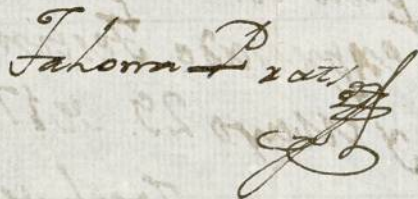 Jahoma Prats